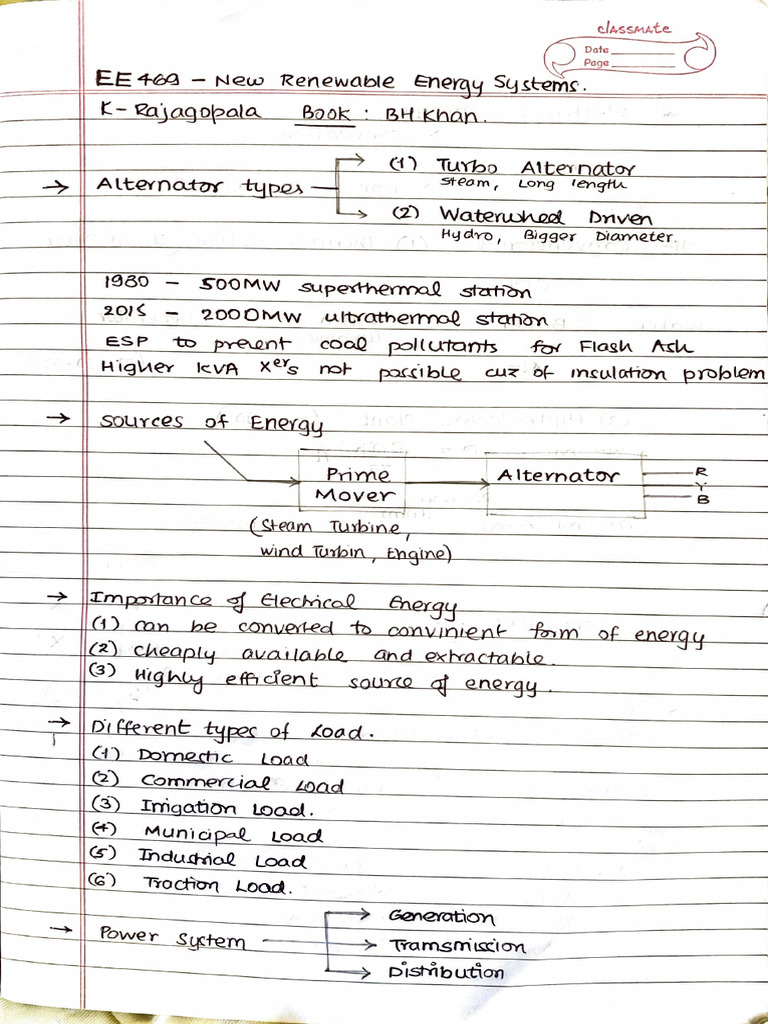 classmate
Date
Page
EE469 - New Renewable Energy Systems.
K-Rajagopala Book : BH Khan.
→ Alternator types
(1) Turbo Alternator
Steam, Long length
(2) Waterwhed Driven
Hydro, Bigger Diameter.
1980 - 500MW superthermal station
2015 - 2000MW ultrathermal station
ESP to prevent coal pollutants for Flash Ash
Higher KVA Xers not possible cuz of insulation problem
→ Sources of Energy
Prime
Mover
Alternator
R
Y
B
(Steam Turbine,
wind Turbin, Engine)
→ Importance of Electrical Energy
(1) can be converted to convinient form of energy
(2) cheaply available and extractable.
(3) Highly efficient source of energy.
→ Different types of Load.
(1) Domestic Load
(2) Commercial Load
(3) Irrigation Load.
(4) Municipal Load
(5) Industrial Load
(6) Traction Load.
→ Power System
Generation
Transmission
Distribution